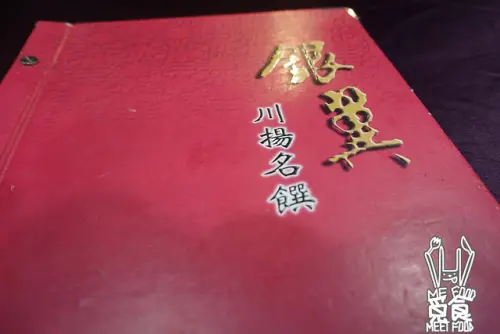 銀翼
川揚名饌
ME FOOD
覓食
MEET FOOD